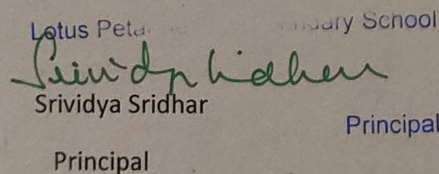 Lotus Peta ary School
Srividya Sridhar
Srividya Sridhar
Principal
Principal